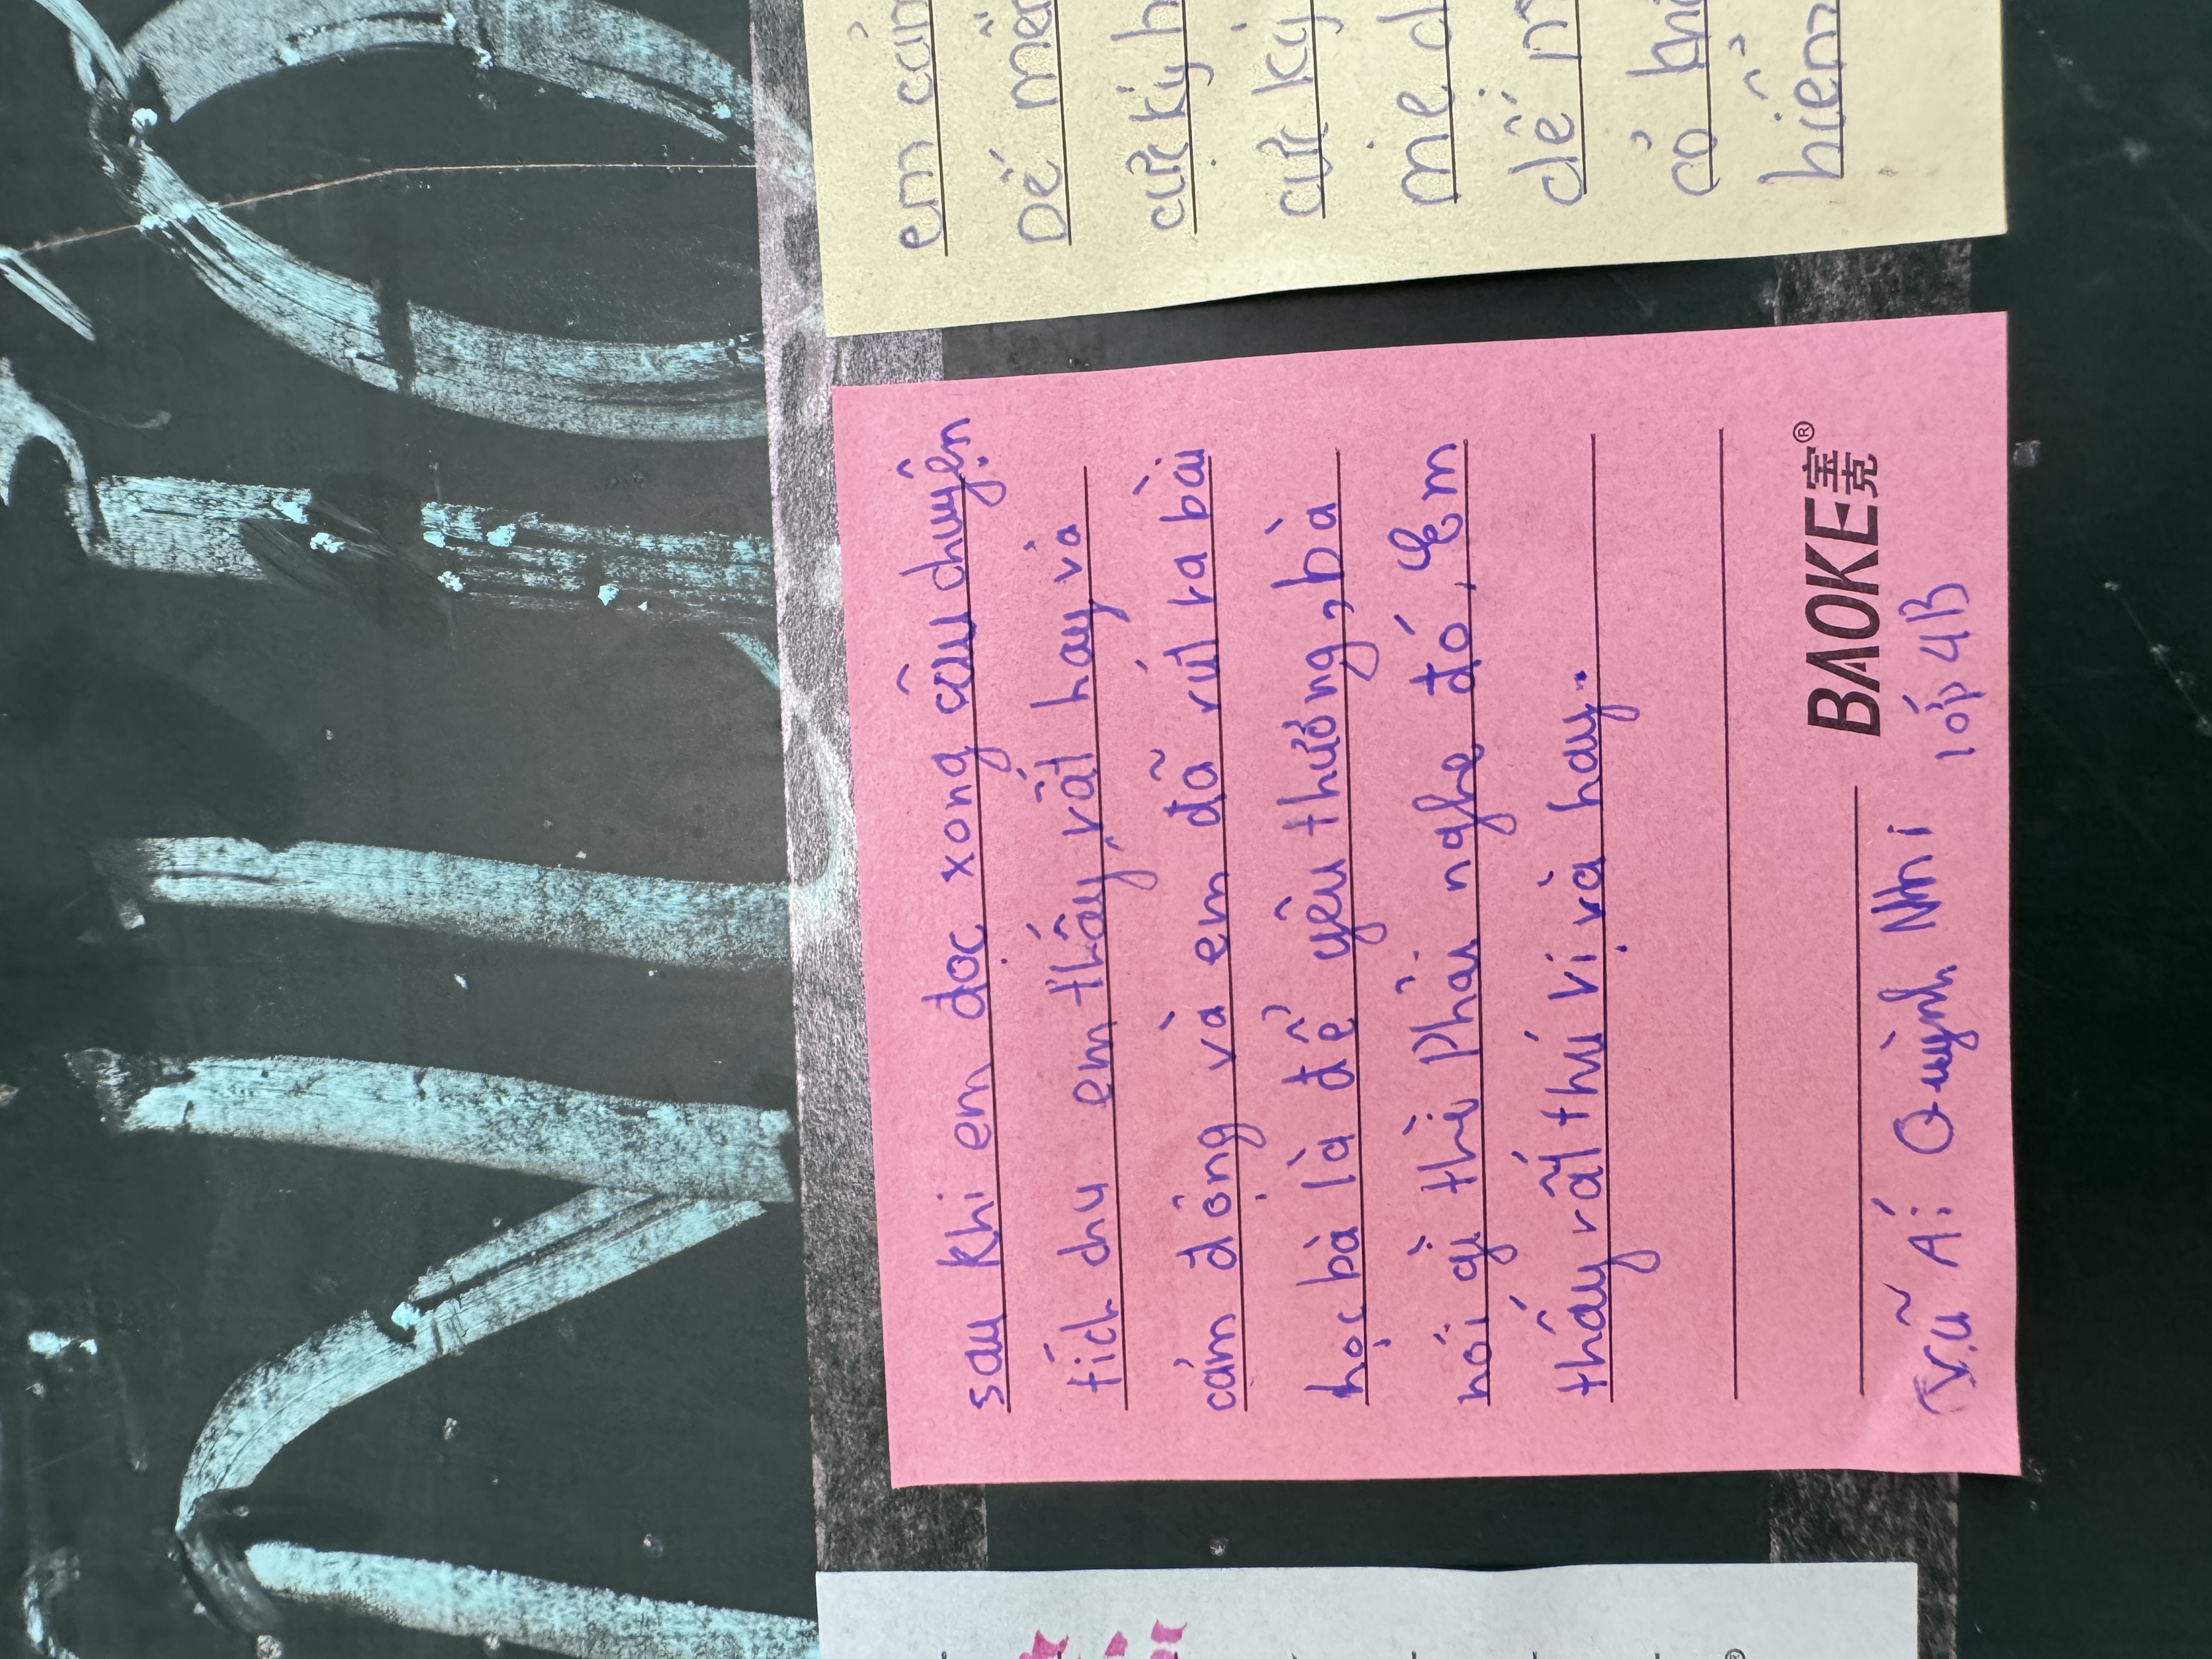 sau khi em đọc xong câu chuyện
tích chu em thấy rất hay và
cảm động và em đã rút ra bài
học bà là để yêu thương, bà
nói gì thì phải nghe đó, Em
thấy rất thú vị và hay.
BAOKE宝克®
V.ũ Ái Quỳnh Nhi lớp 4B
em cảm
Dế mèn
cực kỳ h
cực kỳ
mê d
dế m
có khi
hiểm